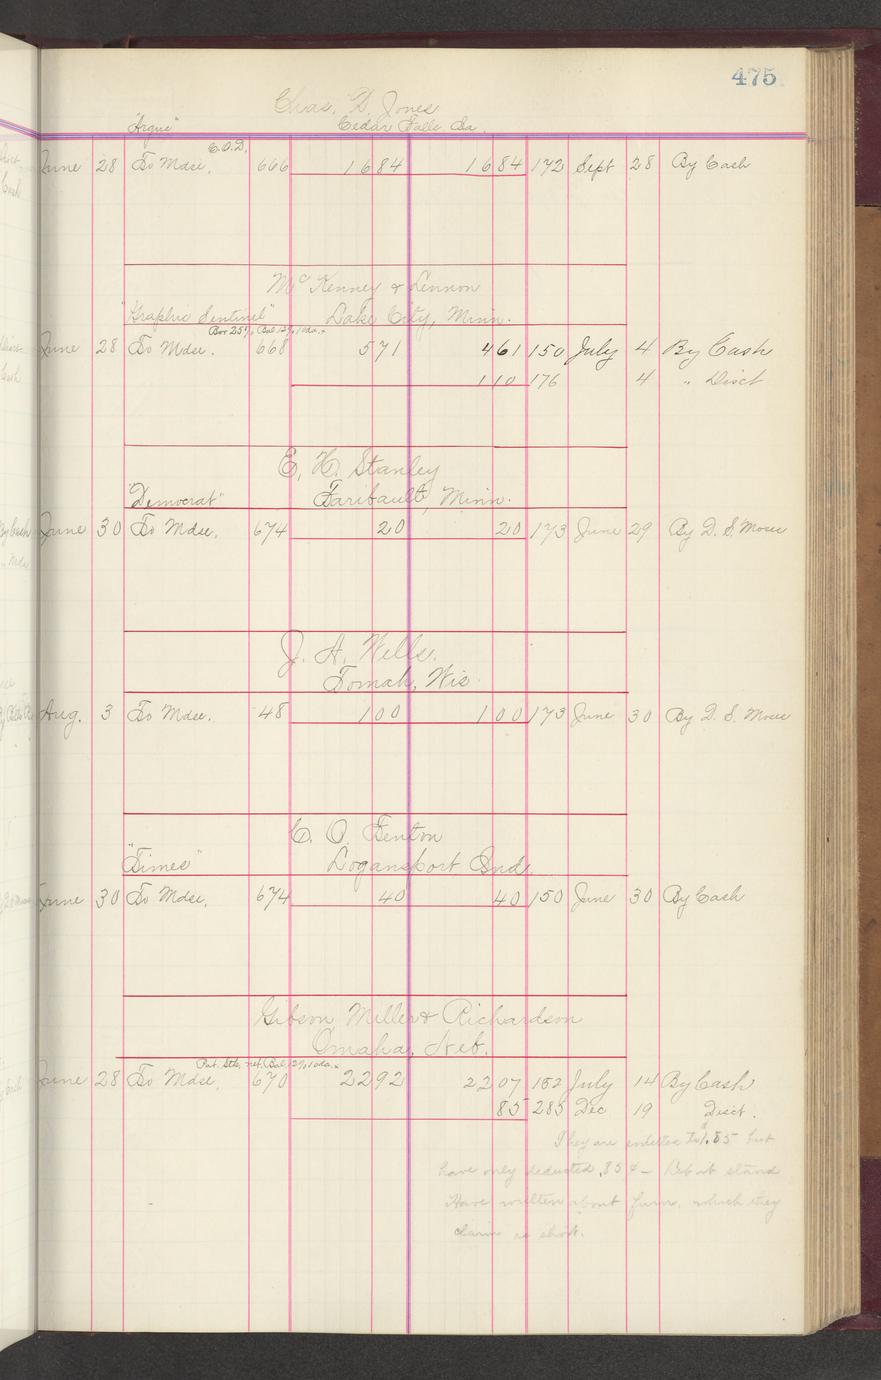 475
Chas. D. Jones
"Argus" Cedar Falls Ia.
C.O.D.
June 28 To Mdse. 666 1684 1684 172 Sept 28 By Cash
McKenney & Lennon
"Graphic Sentinel" Lake City, Minn.
Bor 25% Bal 12% 10da.
June 28 To Mdse. 668 571 461 150 July 4 By Cash
110 176 4 " Disct
E. H. Stanley
"Democrat" Faribault, Minn.
June 30 To Mdse. 674 20 20 173 June 29 By D. S. Moses
J. A. Wells.
Tomah, Wis.
Aug. 3 To Mdse. 48 100 100 173 June 30 By D. S. Moses
C. O. Fenton
"Times" Logansport Ind.
June 30 To Mdse. 674 40 40 150 June 30 By Cash
Gibson Miller & Richardson
Omaha, Neb.
Pat. Sts. net. Bal 12% 10da.
June 28 To Mdse. 670 2292 2207 152 July 14 By Cash
85 285 Dec 19 Disct.
They are entitled to 1.85 but
have only deducted .85¢ - Let it stand
Have written about furn. which they
claim is short.